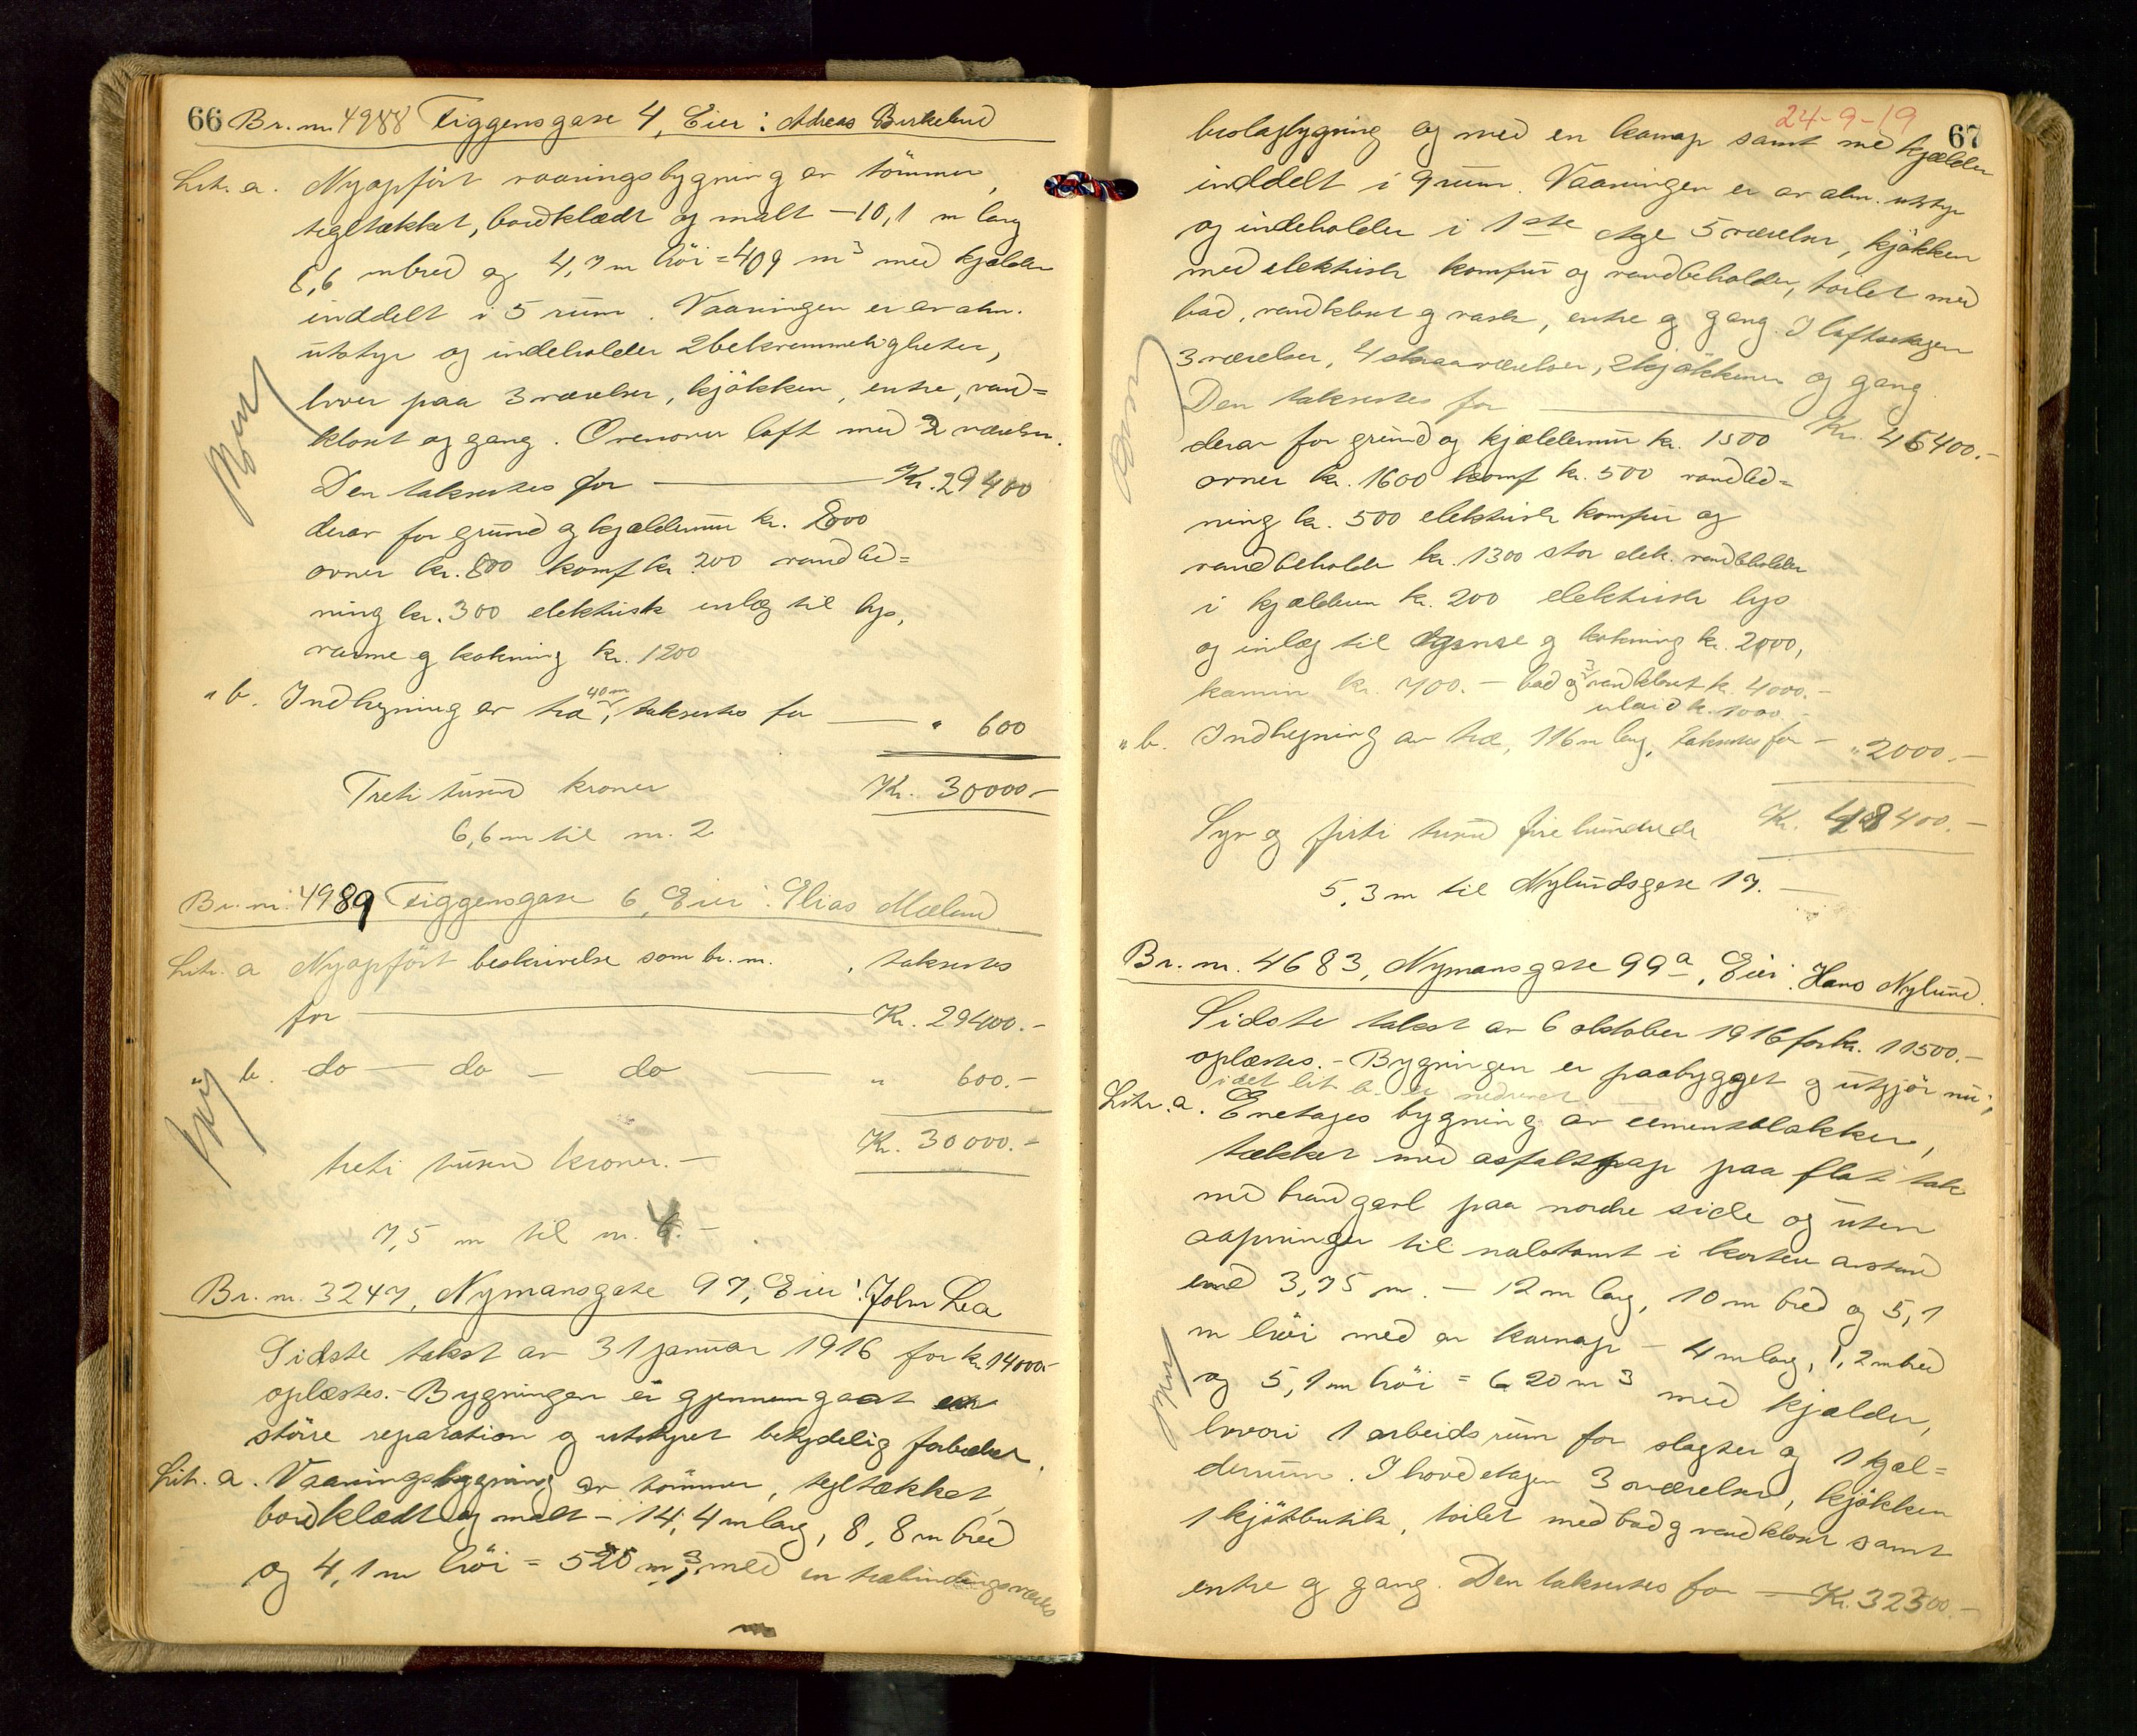 66 Br. nr. 4988 Figgensgate 4, Eier: Adreas Birkelund
Litr. a. Nyopført vaaningsbygning av tømmer,
tegltækket, bordklædt og malt – 10,1 m lang
8,6 m bred og 4,7 m høi = 409 m³ med kjælder
inddelt i 5 rum. Vaaningen er av alm.
utstyr og indeholder 2 bekvemmeligheter,
hver paa 3 værelser, kjøkken, entre, vand=
kloset og gang. Ovenover loft med 2 værelser.
Den takseres for — Kr. 29400
derav for grund og kjældermur kr. 800
ovner kr. 800 komf kr. 200 vandled=
ning kr. 300 elektrisk inlæg til lys,
varme og kokning kr. 1200
" b. Indhegning av træ, 40 m takseres for — " 600
Treti tusind kroner Kr. 30000–
6,6 m til nr. 2
Br. nr. 4989 Figgensgate 6, Eier: Elias Mæland
Litr. a Nyopført beskrivelse som br. nr. , takseres
for — Kr. 29400.–
" b. do — do – do — " 600.–
Kr. 30000.–
treti tusind kroner.–
7,5 m til nr. 4.–
Br. nr. 3247, Nymansgate 97, Eier: John Lea
Sidste takst av 31 januar 1916 for kr. 14000–
oplæstes.– Bygningen er gjennemgaat en
större reparation og utstyret betydelig forbedret.
Litr. a. Vaaningsbygning av tømmer, tegltækket,
bordklædt og malt – 14,4 m lang, 8,8 m bred
og 4,1 m høi = 520 m³, med en træbindingsverks
24-9-19
67
beslagbygning og med en karnap samt med kjælder
inddelt i 9 rum. Vaaningen er av alm. utstyr
og indeholder i 1ste etage 5 værelser, kjøkken
med elektrisk komfur og vandbeholder, toilet med
bad, vandkloset og vask, entre og gang. I loftsetagen
3 værelser, 4 skraaværelser, 2 kjøkkener og gang
Den takseres for — Kr. 46400.–
derav for grund og kjældermur kr. 1500
ovner kr. 1600 komf kr. 500 vandled=
ning kr. 500 elektrisk komfur og
vandbeholder kr. 1300 stor elek. vandbeholder
i kjælderen kr. 200 elektrisk lys
og inlæg til varme og kokning kr. 2000,
kamin kr. 700.– bad og 3 vandkloset kr. 4000.–
kr. 1000.–
" b. Indhegning av træ, 116 m lang, takseres for – " 2000.–
Syv og firti tusind fire hundrede Kr. 48400.–
5,3 m til Nylundsgate 17.–
Br. nr. 4683, Nymansgate 99a, Eier: Hans Nylund.
Sidste takst av 6 oktober 1916 for kr. 11500.–
oplæstes.– Bygningen er paabygget og utgjør nu;
idet lit b. er nedrevet
Litr. a. Enetages bygning av cementblokker,
tækket med asfaltpap paa flat tak
med brandgavl paa nordre side og uten
aapninger til nabotomt i kortere avstand
end 3,75 m. – 12 m lang, 10 m bred og 5,1
m høi med en karnap – 4 m lang, 1,2 m bred
og 5,1 m høi = 620 m³ med kjælder,
hvori 1 arbeidsrum for slagter og 1 kjæl=
derrum. I hovedetagen 3 værelser, kjøkken
1 kjøtbutik, toilet med bad og vandkloset samt
entre og gang. Den takseres for – Kr. 32300.–